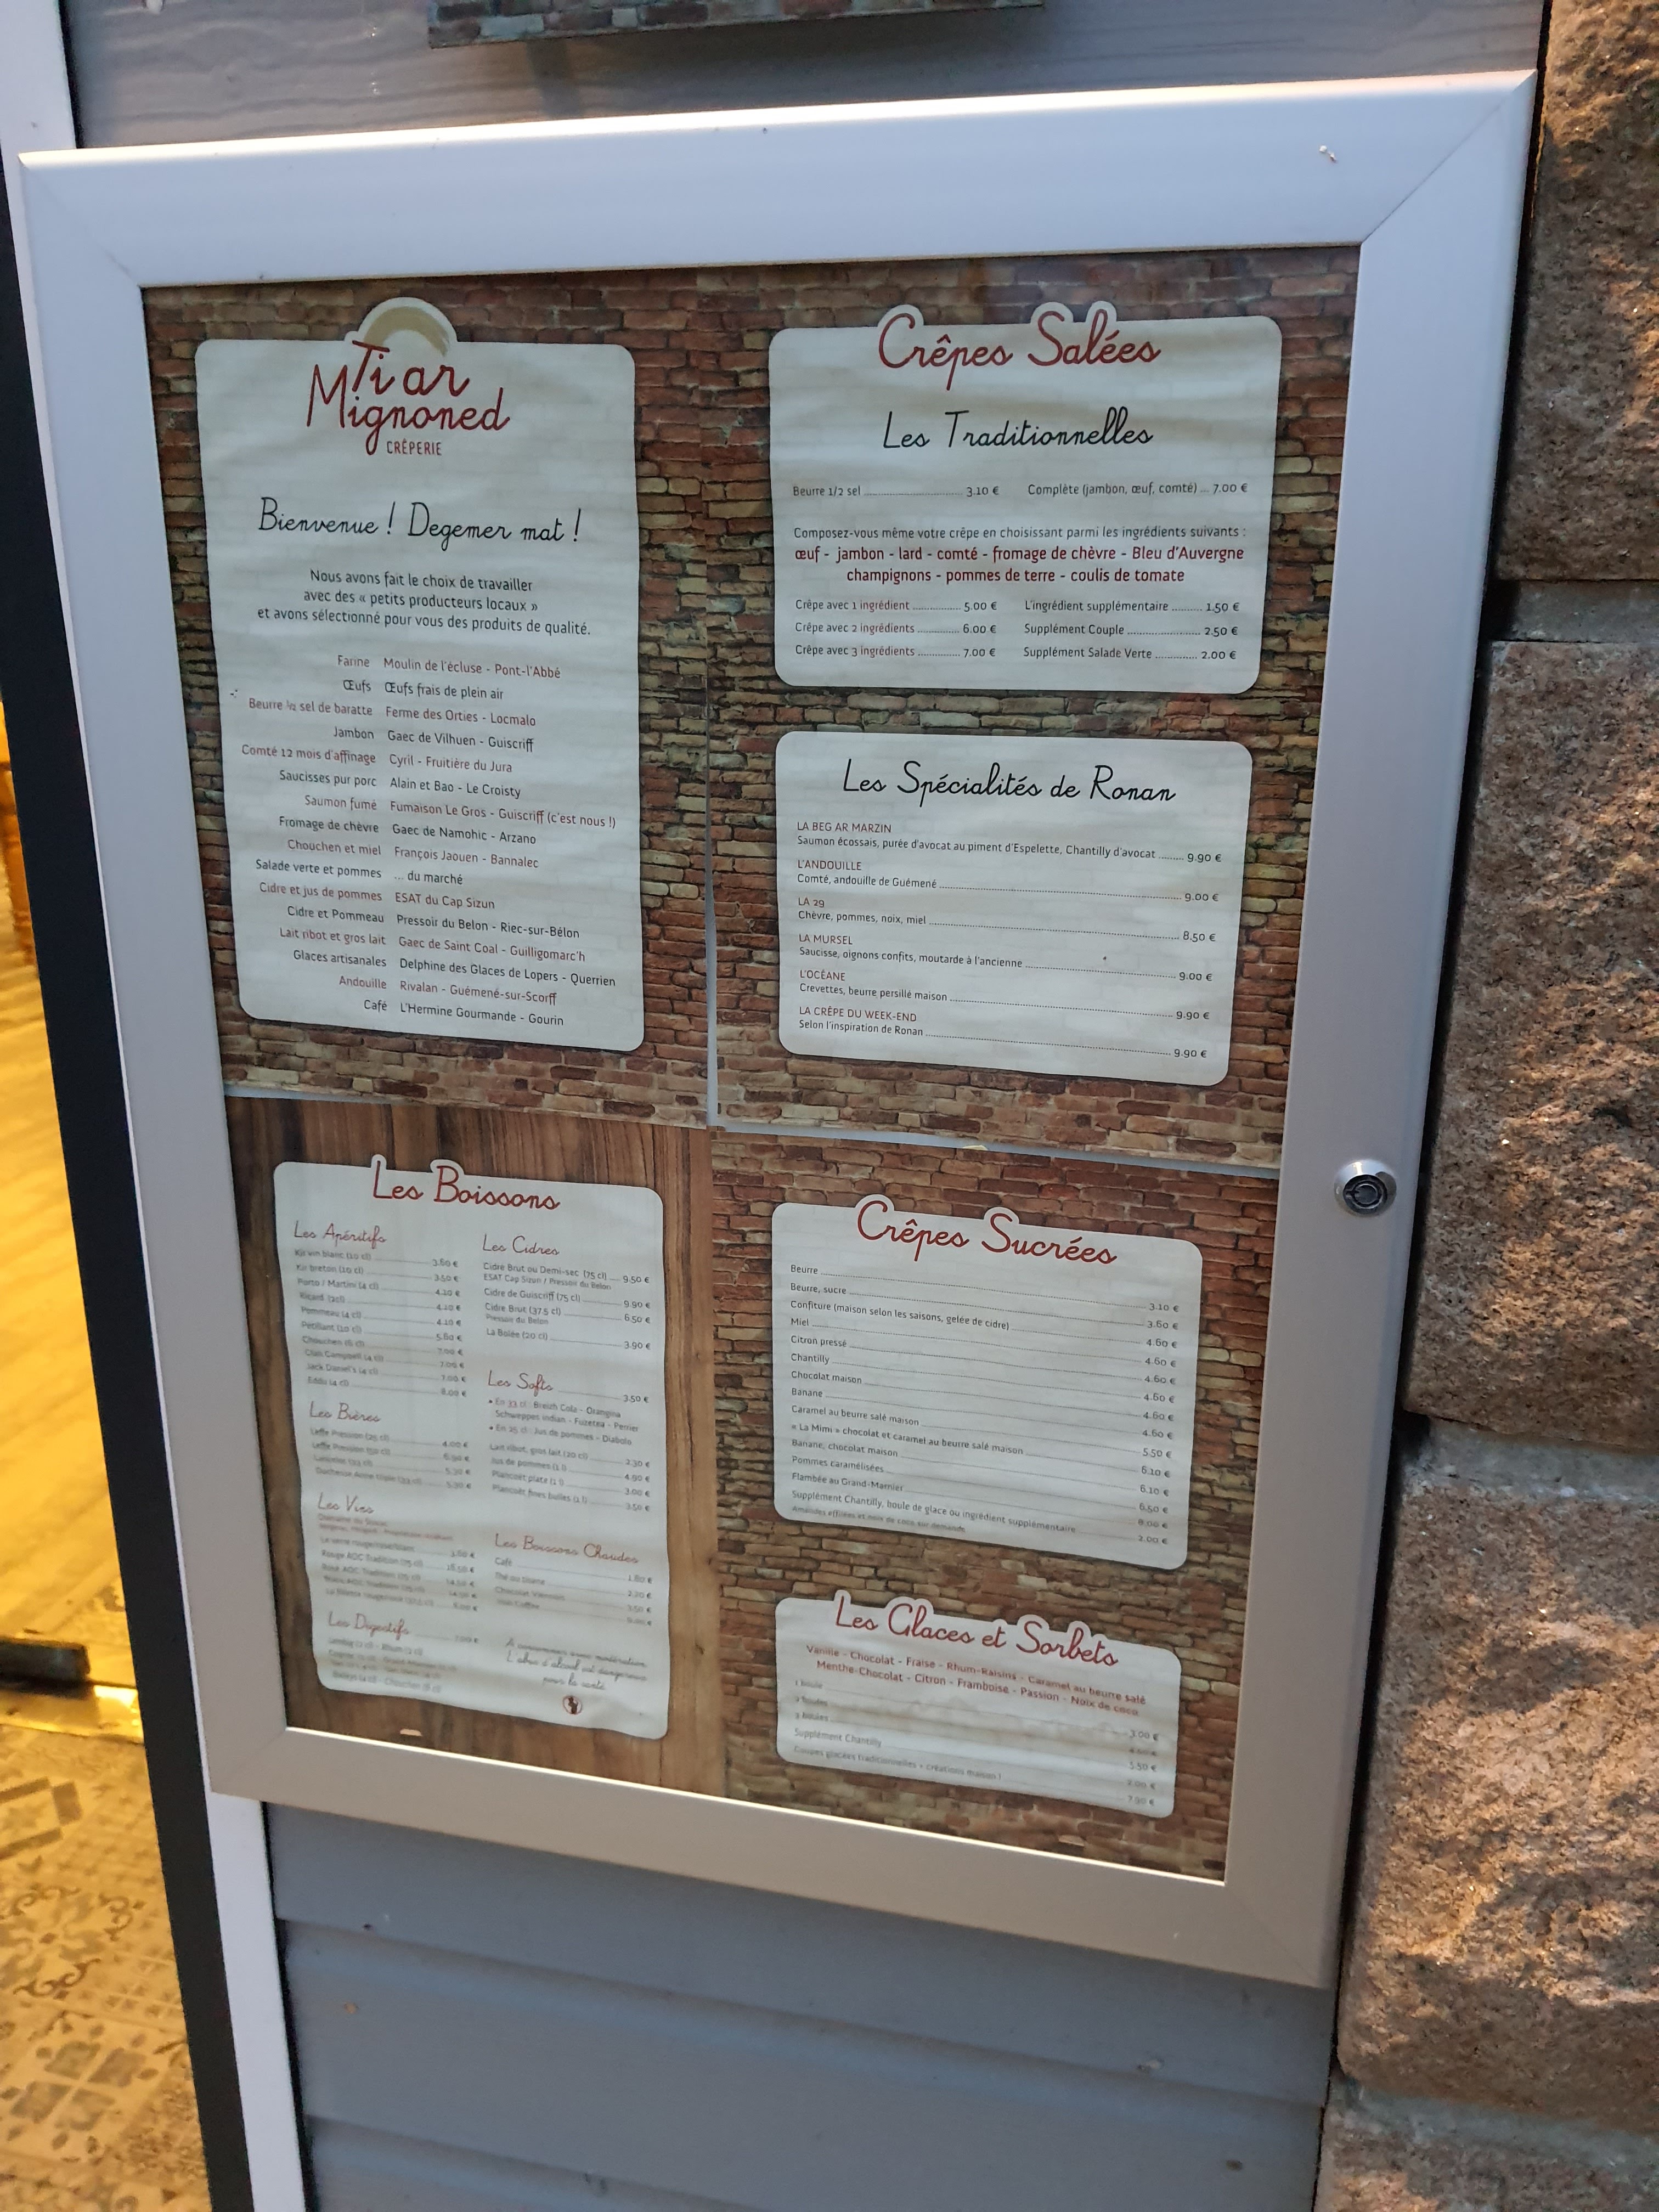 Ti ar
Mignoned
CRÊPERIE
Bienvenue ! Degemer mat !
Nous avons fait le choix de travailler
avec des « petits producteurs locaux »
et avons sélectionné pour vous des produits de qualité.
Farine Moulin de l'écluse - Pont-l'Abbé
Œufs Œufs frais de plein air
Beurre ½ sel de baratte Ferme des Orties - Locmalo
Jambon Gaec de Vilhuen - Guiscriff
Comté 12 mois d'affinage Cyril - Fruitière du Jura
Saucisses pur porc Alain et Bao - Le Croisty
Saumon fumé Fumaison Le Gros - Guiscriff (c'est nous !)
Fromage de chèvre Gaec de Namohic - Arzano
Chouchen et miel François Jaouen - Bannalec
Salade verte et pommes ... du marché
Cidre et jus de pommes ESAT du Cap Sizun
Cidre et Pommeau Pressoir du Belon - Riec-sur-Bélon
Lait ribot et gros lait Gaec de Saint Coal - Guilligomarc'h
Glaces artisanales Delphine des Glaces de Lopers - Querrien
Andouille Rivalan - Guémené-sur-Scorff
Café L'Hermine Gourmande - Gourin
Crêpes Salées
Les Traditionnelles
Beurre 1/2 sel 3.10 € Complète (jambon, œuf, comté) ... 7.00 €
Composez-vous même votre crêpe en choisissant parmi les ingrédients suivants :
œuf - jambon - lard - comté - fromage de chèvre - Bleu d'Auvergne
champignons - pommes de terre - coulis de tomate
Crêpe avec 1 ingrédient 5.00 € L'ingrédient supplémentaire 1.50 €
Crêpe avec 2 ingrédients 6.00 € Supplément Couple 2.50 €
Crêpe avec 3 ingrédients 7.00 € Supplément Salade Verte 2.00 €
Les Spécialités de Ronan
LA BEG AR MARZIN
Saumon écossais, purée d'avocat au piment d'Espelette, Chantilly d'avocat 9.90 €
L'ANDOUILLE
Comté, andouille de Guémené 9.00 €
LA 29
Chèvre, pommes, noix, miel 8.50 €
LA MURSEL
Saucisse, oignons confits, moutarde à l'ancienne 9.00 €
L'OCÉANE
Crevettes, beurre persillé maison 9.90 €
LA CRÊPE DU WEEK-END
Selon l'inspiration de Ronan 9.90 €
Les Boissons
Les Apéritifs
Kir vin blanc (10 cl) 3.60 €
Kir breton (10 cl) 3.50 €
Porto / Martini (4 cl) 4.10 €
Ricard (2cl) 4.10 €
Pommeau (4 cl) 4.10 €
Pétillant (10 cl) 5.60 €
Chouchen (6 cl) 7.00 €
Clan Campbell (4 cl) 7.00 €
Jack Daniel's (4 cl) 7.00 €
Eddu (4 cl) 8.00 €
Les Bières
Leffe Pression (25 cl) 4.00 €
Leffe Pression (50 cl)
Duchesse Anne triple (33 cl) 5.30 €
Les Vins
Les Digestifs
Les Cidres
Cidre Brut ou Demi-sec (75 cl) 9.50 €
ESAT Cap Sizun / Pressoir du Belon
Cidre de Guiscriff (75 cl) 9.90 €
Cidre Brut (37.5 cl) 6.50 €
Pressoir du Belon
La Bolée (20 cl) 3.90 €
Les Softs 3.50 €
• En 33 cl : Breizh Cola - Orangina
Schweppes indian - Fuzetea - Perrier
• En 25 cl : Jus de pommes - Diabolo
Lait ribot, gros lait (20 cl) 2.30 €
Jus de pommes (1 l) 4.90 €
Plancoët plate (1 l) 3.00 €
Plancoët fines bulles (1 l) 3.50 €
Les Boissons Chaudes
Café 1.80 €
Thé ou tisane 2.20 €
Chocolat Viennois 3.50 €
Irish Coffee
À consommer avec modération.
L'abus d'alcool est dangereux
pour la santé
Crêpes Sucrées
Beurre 3.10 €
Beurre, sucre 3.60 €
Confiture (maison selon les saisons, gelée de cidre) 4.60 €
Miel 4.60 €
Citron pressé 4.60 €
Chantilly 4.60 €
Chocolat maison 4.60 €
Banane 4.60 €
Caramel au beurre salé maison 5.50 €
« La Mimi » chocolat et caramel au beurre salé maison 6.10 €
Banane, chocolat maison 6.10 €
Pommes caramélisées 6.50 €
Flambée au Grand-Marnier 8.00 €
Supplément Chantilly, boule de glace ou ingrédient supplémentaire 2.00 €
Amandes effilées et noix de coco sur demande
Les Glaces et Sorbets
Vanille - Chocolat - Fraise - Rhum-Raisins - Caramel au beurre salé
Menthe-Chocolat - Citron - Framboise - Passion - Noix de coco
1 boule 3.00 €
2 boules
3 boules 5.50 €
Supplément Chantilly 2.00 €
Coupes glacées traditionnelles + créations maison ! 7.90 €